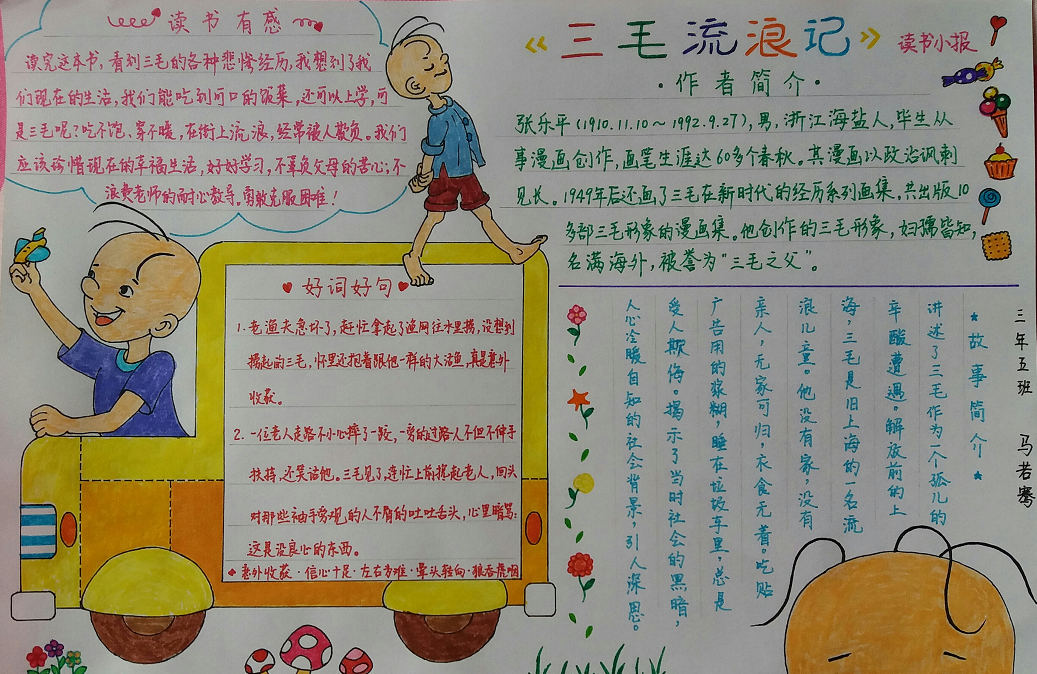 读书有感
读完这本书，看到三毛的各种悲惨经历，我想到了我
们现在的生活，我们能吃到可口的饭菜，还可以上学，可
是三毛呢？吃不饱，穿不暖，在街上流浪，经常被人欺负。我们
应该珍惜现在的幸福生活，好好学习，不辜负父母的苦心，不
浪费老师的耐心教导。勇敢克服困难！
《三毛流浪记》
读书小报
·作者简介·
张乐平（1910.11.10～1992.9.27），男，浙江海盐人，毕生从
事漫画创作，画笔生涯达60多个春秋。其漫画以政治讽刺
见长。1949年后还画了三毛在新时代的经历系列画集。共出版10
多部三毛形象的漫画集。他创作的三毛形象，妇孺皆知，
名满海外，被誉为“三毛之父”。
好词好句
1.老渔夫急坏了，赶忙拿起了渔网往水里捞，没想到
捞起的三毛，怀里还抱着跟他一样的大活鱼，真是意外
收获。
2.一位老人走路不小心摔了一跤，一旁的过路人不但不伸手
扶持，还笑话他。三毛见了，连忙上前搀起老人，回头
对那些袖手旁观的人不屑的吐吐舌头，心里暗骂：
这是没良心的东西。
意外收获·信心十足·左右为难·晕头转向·狼吞虎咽
三年五班 马若骞
★故事简介★
讲述了三毛作为一个孤儿的
辛酸遭遇。解放前的上
海，三毛是旧上海的一名流
浪儿童。他没有家，没有
亲人，无家可归，衣食无着。吃贴
广告用的浆糊，睡在垃圾车里，总是
受人欺侮。揭示了当时社会的黑暗，
人心冷暖自知的社会背景，引人深思。